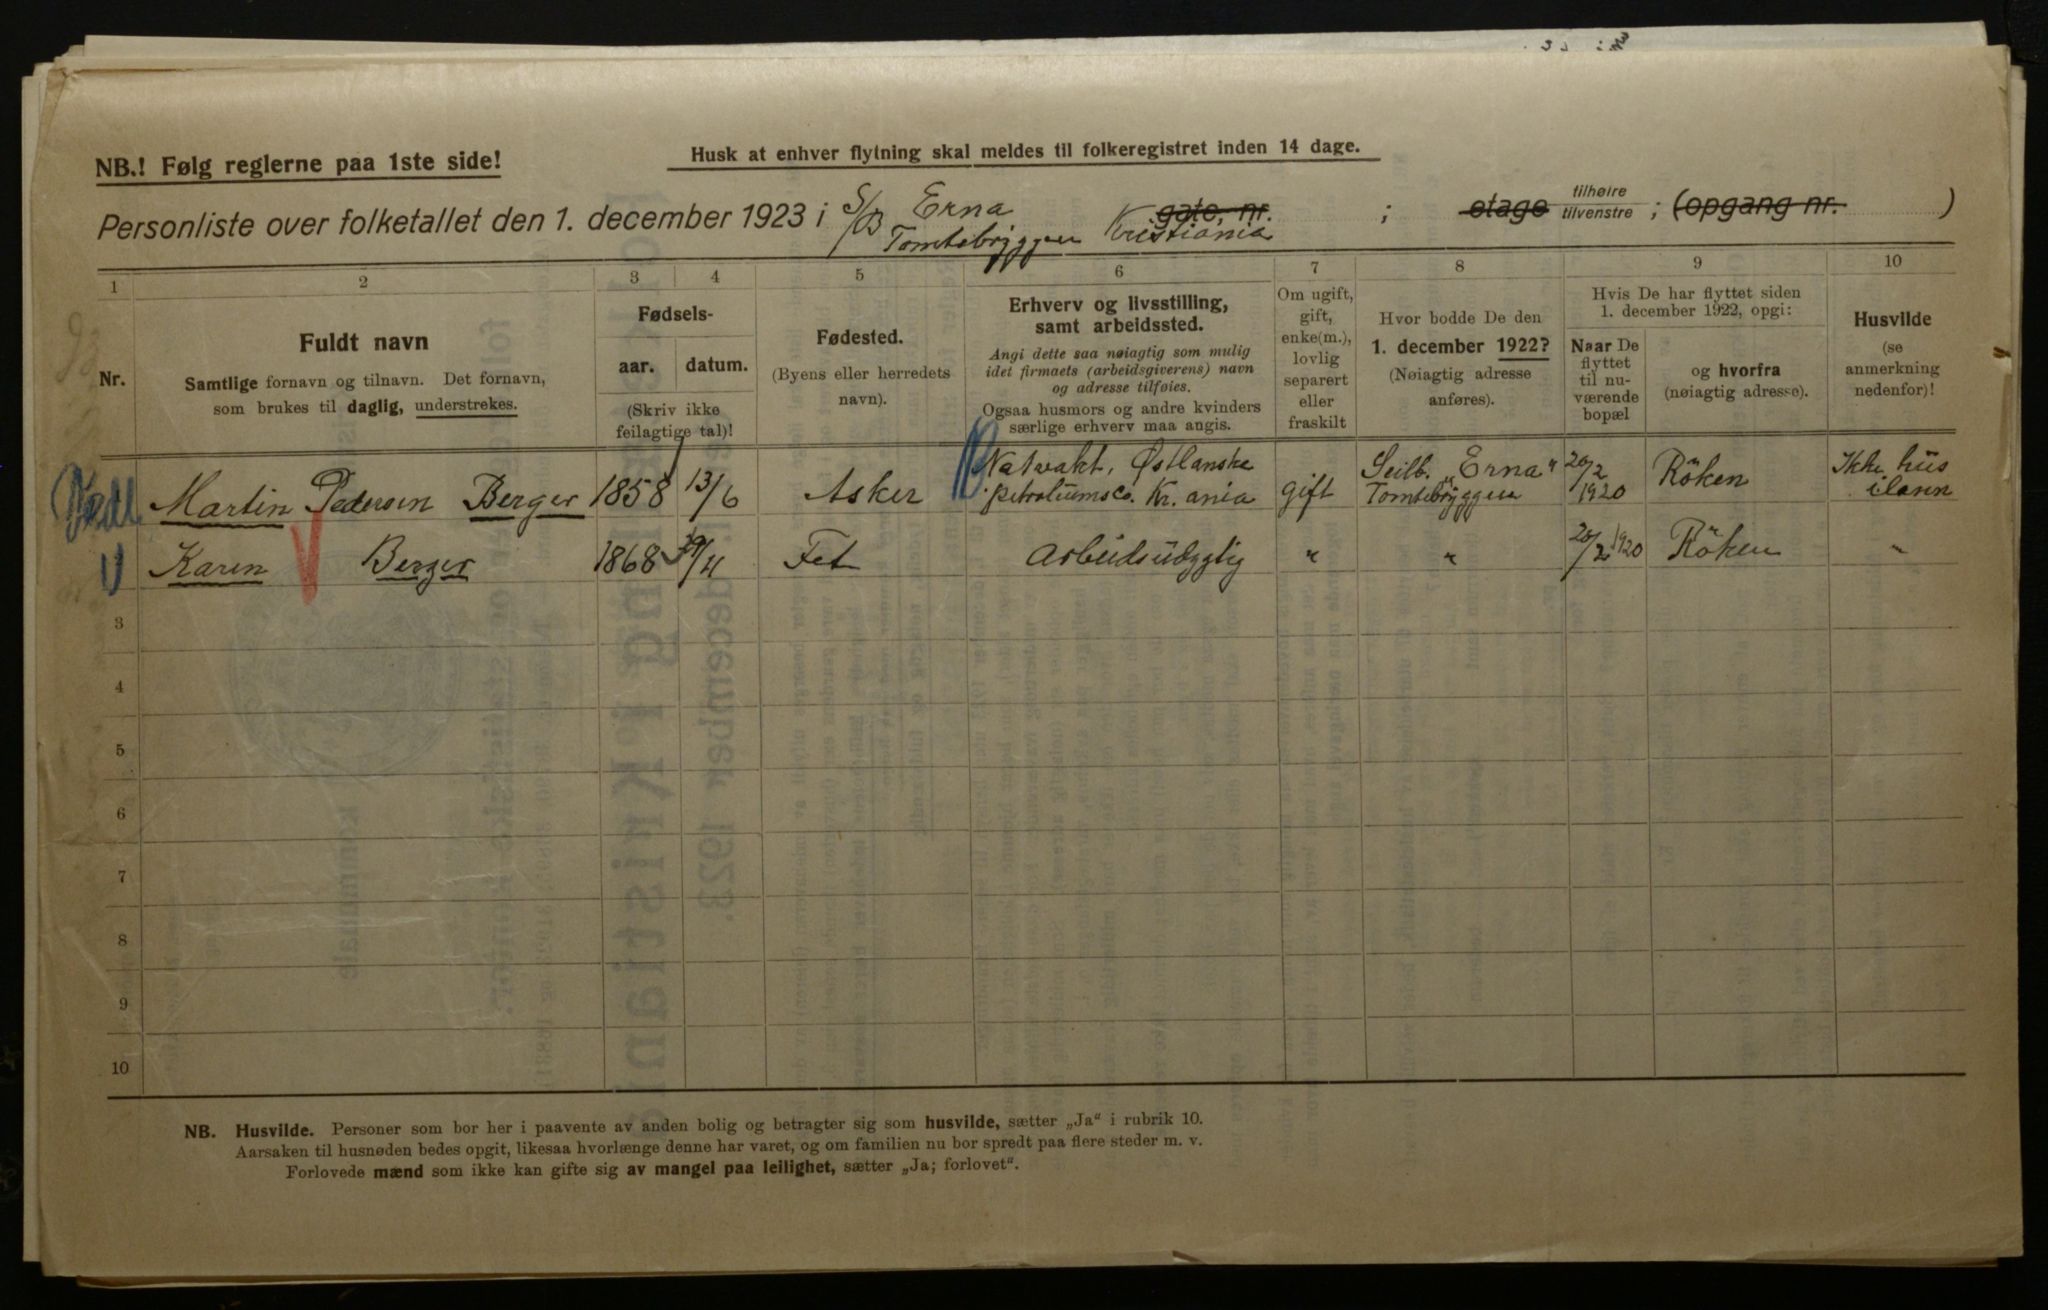 NB.! Følg reglerne paa 1ste side!
Husk at enhver flytning skal meldes til folkeregistret inden 14 dage.
Personliste over folketallet den 1. december 1923 i S/B Erna gate, nr. ; etage tilhøire tilvenstre ; (opgang nr. )
Tomtebryggen Kristiania
1 2 3 4 5 6 7 8 9 10
Nr.
Fuldt navn
Samtlige fornavn og tilnavn. Det fornavn,
som brukes til daglig, understrekes.
Fødsels-
aar. datum.
(Skriv ikke
feilagtige tal)!
Fødested.
(Byens eller herredets
navn).
Erhverv og livsstilling,
samt arbeidssted.
Angi dette saa nøiagtig som mulig
idet firmaets (arbeidsgiverens) navn
og adresse tilføies.
Ogsaa husmors og andre kvinders
særlige erhverv maa angis.
Om ugift,
gift,
enke(m.),
lovlig
separert
eller
fraskilt
Hvor bodde De den
1. december 1922?
(Nøiagtig adresse
anføres).
Hvis De har flyttet siden
1. december 1922, opgi:
Naar De
flyttet
til nu-
værende
bopæl
og hvorfra
(nøiagtig adresse).
Husvilde
(se
anmerkning
nedenfor)!
Martin Pedersen Berger 1858 13/6 Asker Natvakt, Østlanske gift Seilb. „Erna" 20/2 Röken Ikke hus
petroliumsco. Kr. ania Tomtebryggen 1920
Karen Berger 1868 /4 Fet Arbeidsudygtig " " 20/2 1920 Röken "
3
4
5
6
7
8
9
10
NB. Husvilde. Personer som bor her i paavente av anden bolig og betragter sig som husvilde, sætter „Ja" i rubrik 10.
Aarsaken til husnøden bedes opgit, likesaa hvorlænge denne har varet, og om familien nu bor spredt paa flere steder m. v.
Forlovede mænd som ikke kan gifte sig av mangel paa leilighet, sætter „Ja; forlovet".